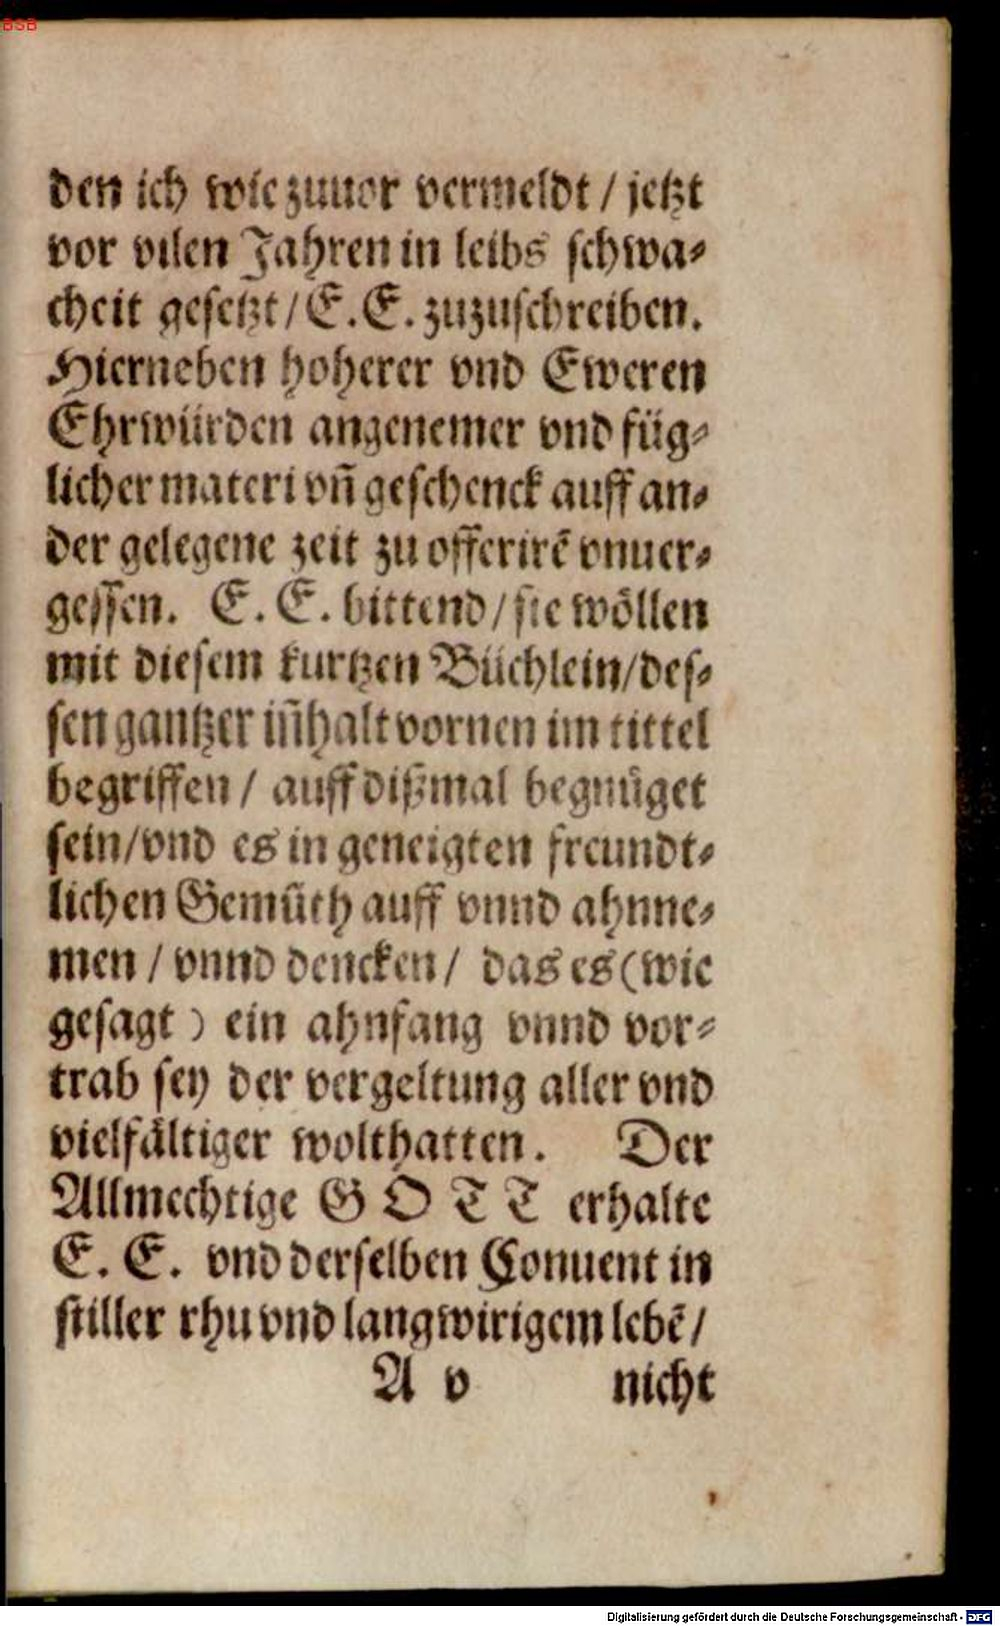 BSB
den ich wie zuuor vermeldt / jetzt
vor vilen Jahren in leibs schwa⸗
cheit gesetzt / E. E. zuzuschreiben.
Hierneben hoherer vnd Eweren
Ehrwürden angenemer vnd füg⸗
licher materi vñ geschenck auff an⸗
der gelegene zeit zu offerirẽ vnuer⸗
gessen. E. E. bittend / sie wöllen
mit diesem kurtzen Büchlein / des⸗
sen gantzer iñhalt vornen im tittel
begriffen / auff dißmal begnüget
sein / vnd es in geneigten freundt⸗
lichen Gemüth auff vnnd ahnne⸗
men / vnnd dencken / das es (wie
gesagt) ein ahnfang vnnd vor⸗
trab sey der vergeltung aller vnd
vielfältiger wolthatten. Der
Allmechtige GOTT erhalte
E. E. vnd derselben Conuent in
stiller rhu vnd langwirigem lebẽ /
A v nicht
Digitalisierung gefördert durch die Deutsche Forschungsgemeinschaft - DFG